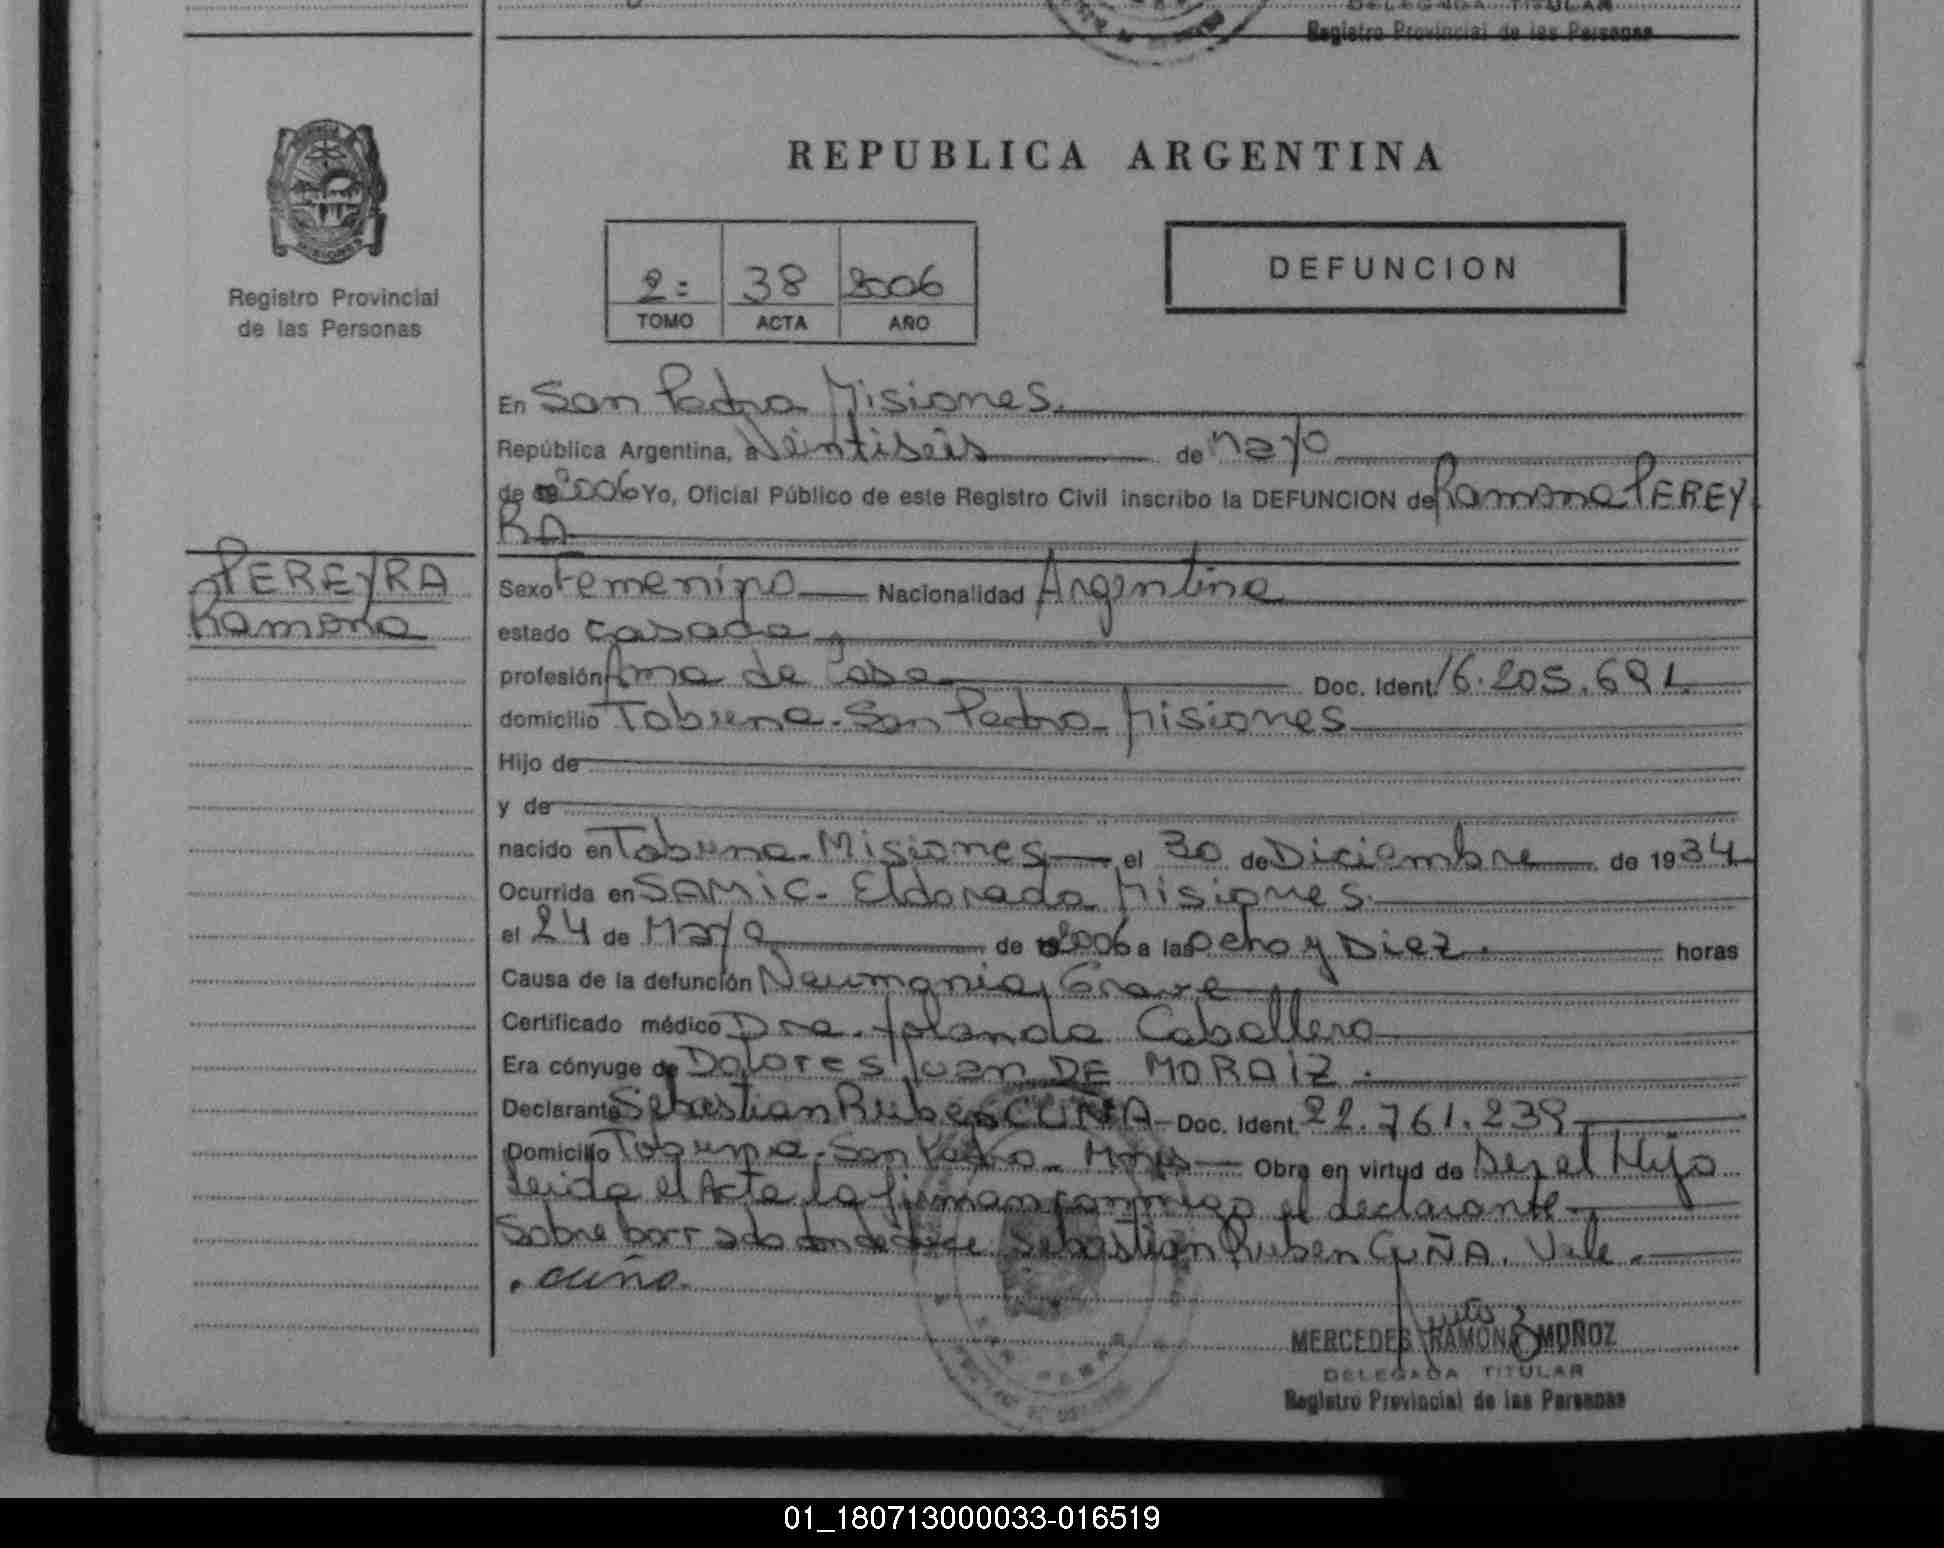 DELEGADA TITULAR
Registro Provincial de las Personas
REPUBLICA ARGENTINA
2: 38 2006
TOMO ACTA AÑO
DEFUNCION
Registro Provincial
de las Personas
En San Pedro Misiones.
República Argentina, a Veintiseis de mayo
de 2006 Yo, Oficial Público de este Registro Civil inscribo la DEFUNCION de Ramona PEREY
RA
PEREYRA
Ramona
Sexo Femenino Nacionalidad Argentina
estado casada
profesión Ama de Casa Doc. Ident. 16.205.691
domicilio Tobuna - San Pedro - Misiones
Hijo de
y de
nacido en Tobuna - Misiones el 30 de Diciembre de 1934
Ocurrida en SAMIC - Eldorado Misiones.
el 24 de Mayo de 2006 a las ocho y Diez. horas
Causa de la defunción Neumonia, Grave
Certificado médico Dra. Yolanda Caballero
Era cónyuge de Dolores Juan DE MORAIZ.
Declarante Sebastian Ruben CUÑA - Doc. Ident. 22.761.239
Domicilio Tobuna - San Pedro - Mnes Obra en virtud de Ser el Hijo
Leida el Acta la firman conmigo el declarante
Sobre borrado donde dice Sebastian Ruben CUÑA. Vale.
. cuña.
MERCEDES RAMONA MUÑOZ
DELEGADA TITULAR
Registro Provincial de las Personas
01_180713000033-016519